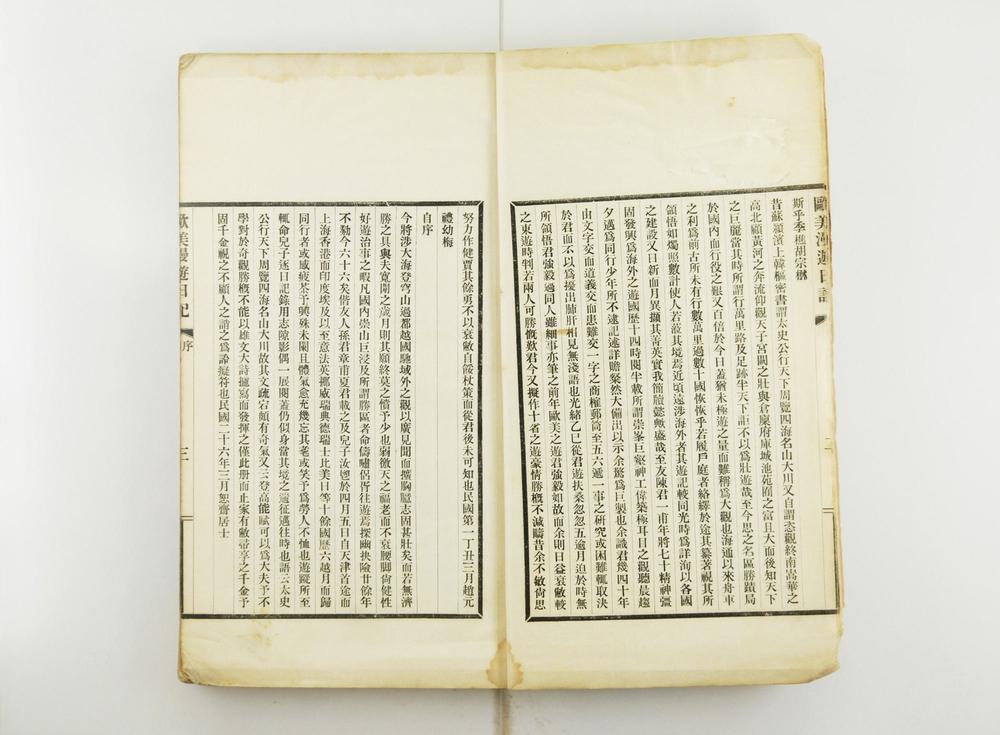 歐美漫遊日記
斯乎季樵胡宗楙
昔蘇潁濱上韓樞密書謂太史公行天下周覽四海名山大川又自謂恣觀終南嵩華之
高北顧黃河之奔流仰觀天子宮闕之壯與倉廩府庫城池苑囿之富且大而後知天下
之巨麗當其時所謂行萬里路及足跡半天下詎不以為壯遊哉至今思之名區勝蹟局
於國內而行役之艱又百倍於今日蓋猶未極遊之量而難稱為大觀也海通以來舟車
之利為前古所未有行數萬里過數十國恢恢乎若履戶庭者絡繹於途其纂著視其所
領悟如燭照數計使人若蒞其境焉近頃遠涉海外者其遊記較同光時為詳洵以各國
之建設又日新而月異擷其菁英實我簡牘懿歟盛哉至友陳君一甫年將七十精神彊
固發興為海外之遊國歷十四時閱半載所謂崇峯巨壑神工偉築極耳目之觀聽晨趨
夕邁為同行少年所不逮記述詳贍粲然大備出以示余驚為巨製也余識君幾四十年
由文字交而道義交而患難交一字之商榷郵筒至五六遞一事之研究或困難輒取決
於君而不以為擾出肺肝相見無淺語也光緒乙巳從君遊扶桑忽忽五逾月迫於時無
所領悟君強毅過同人雖細事亦筆之前年歐美之游君強毅如故而余則日益衰敝較
之東遊時判若兩人可勝慨歎君今又擬作十省之遊豪情勝槪不減疇昔余不敏尙思
努力作健賈其餘勇不以衰敝自餒杖策而從君後未可知也民國第一丁丑三月趙元
禮幼梅
自序
今將涉大海登穹山過都越國馳域外之觀以廣見聞而擴胸臆志固甚壯矣而若無濟
勝之具與夫寬閒之歲月則其願終莫之償予少也弱徼天之福老而不衰腰脚尙健性
好遊治事之暇凡國內崇山巨浸及所謂勝區者命儔嘯侶胥往遊焉探幽抉險廿餘年
不勌今六十六矣偕友人孫君章甫夏君載之及兒子汝愬於四月五日自天津首途而
上海香港而印度埃及以至意法英挪威瑞典德瑞士比美日等十餘國歷六越月而歸
同行者或感疲苶予興殊未闌且體氣愈充幾忘其老或笑予為勞人不恤也遊蹤所至
輒命兒子逐日記錄用志隙影偶一展閱蓋仍似身當其境之遄征邁往時也語云太史
公行天下周覽四海名山大川故其文疏宕頗有奇氣又云登高能賦可以為大夫予不
學對於奇觀勝槪不能以雄文大詩攄寫而發揮之僅此册而止家有敝帚享之千金予
固千金視之不顧人之誚之為詅癡符也民國二十六年三月恕齋居士
歐美漫遊日記
序
三